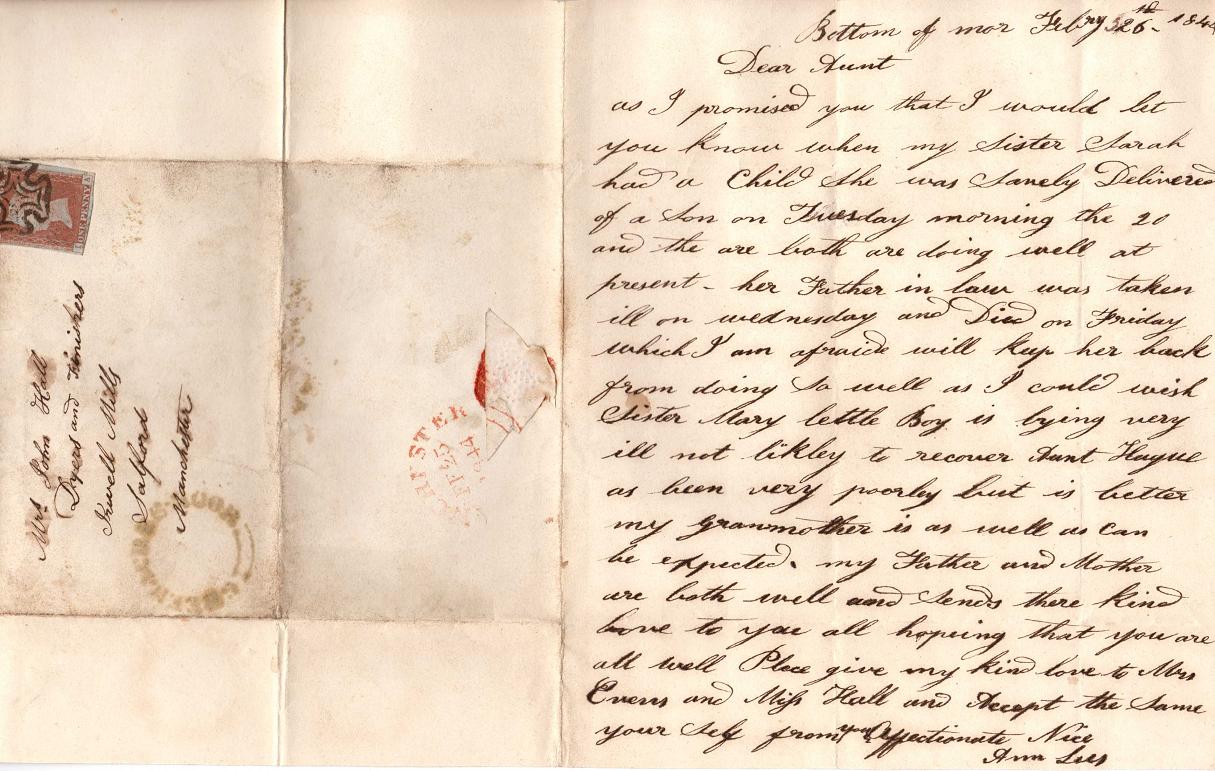 ONE PENNY
Mrs John Hall
Dyers and Finishers
Irwell Mills
Salford
Manchester
FE 25
1844
Bottom of mor Febry 26th 1844
Dear Aunt
as I promised you that I would let
you know when my Sister Sarah
had a Child She was Savely Delivered
of a Son on Tuesday morning the 20
and the are both are doing well at
present - her Father in law was taken
ill on wednesday and Died on Friday
which I am afraide will keep her back
from doing So well as I could wish
Sister Mary lettle Boy is lying very
ill not likley to recover Aunt Hague
as been very poorley but is better
my granmother is as well as can
be expected. my Father and Mother
are both well and Sends there kind
love to you all hopeing that you are
all well Plece give my kind love to Mrs
Evens and Miss Hall and Accept the Same
your Self from your Affectionate Nice
Ann Lees